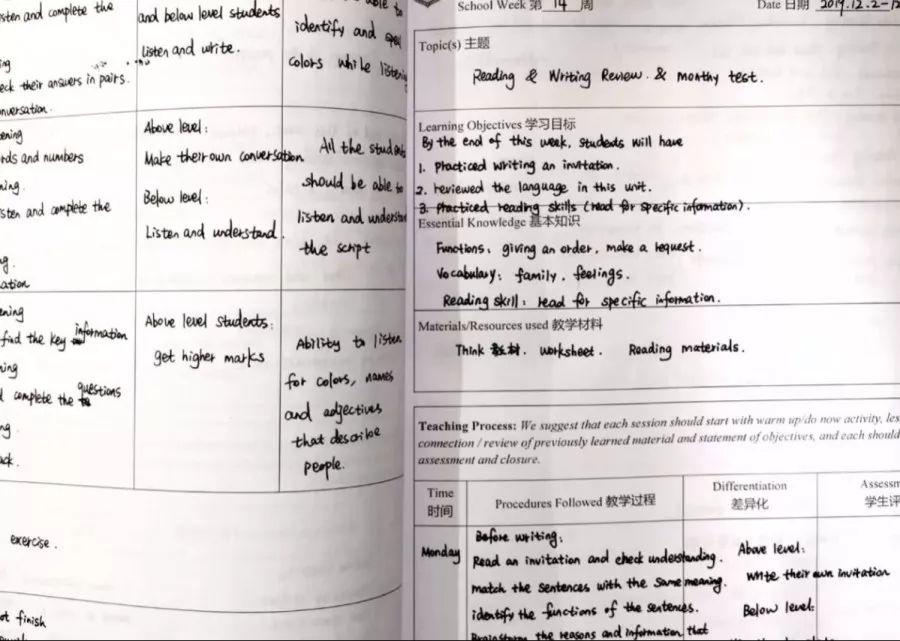 sten and complete the
eck their answers in pairs.
nversation.
ening
rds and numbers
ning.
sten and complete the
ation
ening
find the key information
ning
complete the questions
ng.
ack.
exercise.
ot finish
and below level students
listen and write.
Above level:
Make their own conversation
Below level:
Listen and understand.
Above level students:
get higher marks
able to
identify and
colors while listening
All the students
should be able to
listen and understand
the script
Ability to listen
for colors, names
and adjectives
that describe
people.
School Week 第 14 周
Date 日期 2019.12.2-12
Topic(s) 主题
Reading & Writing Review. & monthy test.
Learning Objectives 学习目标
By the end of this week, students will have
1. Practiced writing an invitation.
2. reviewed the language in this unit.
3. Practiced reading skills (read for specific information).
Essential Knowledge 基本知识
Functions: giving an order, make a request.
Vocabulary: family, feelings.
Reading skill: read for specific information.
Materials/Resources used 教学材料
Think 教材. worksheet. Reading materials.
Teaching Process: We suggest that each session should start with warm up/do now activity, les
connection / review of previously learned material and statement of objectives, and each should
assessment and closure.
Time
时间
Procedures Followed 教学过程
Differentiation
差异化
Assessm
学生评
Monday
Before writing:
Read an invitation and check understanding.
match the sentences with the same meaning.
identify the functions of the sentences.
Brainstorm the reasons and information that
Above level:
write their own invitation
Below level: